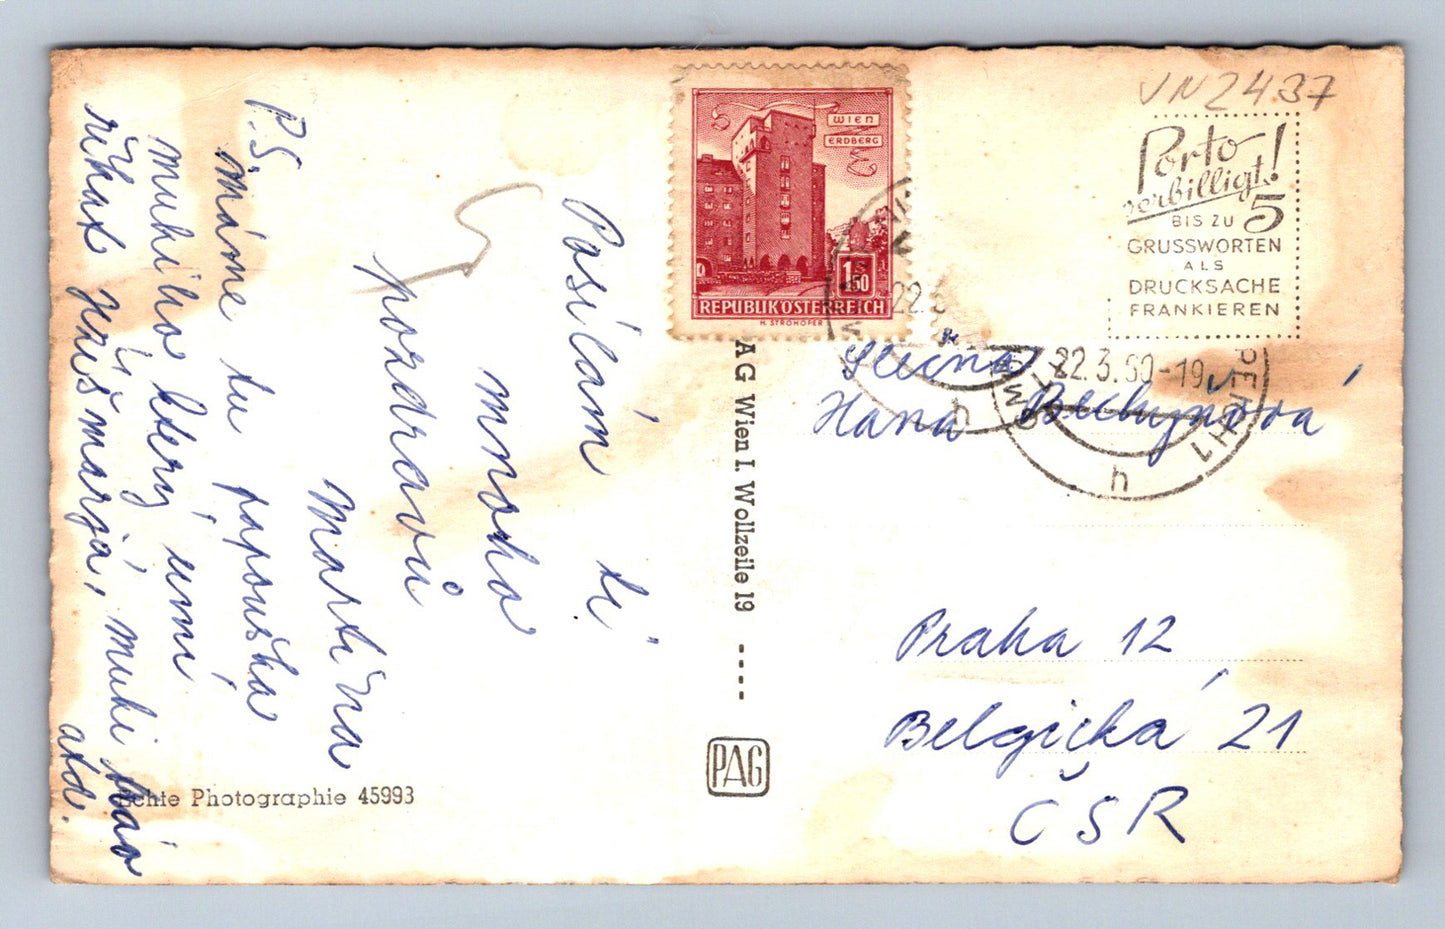 Posílám ti
mnoho
pozdravů
Martina
P.S.
máme tu papouška
mukiho který umí
říkat Ježišmarjá, muki
atd.
Echte Photographie 45993
AG Wien I. Wollzeile 19
PAG
WIEN
ERDBERG
1
50
REPUBLIK ÖSTERREICH
H. STROHOFER
VN2437
Porto
verbilligt!
BIS ZU 5
GRUSSWORTEN
ALS
DRUCKSACHE
FRANKIEREN
22.3.60-19
Slečna
Hana Bechyňová
Praha 12
Belgická 21
ČSR